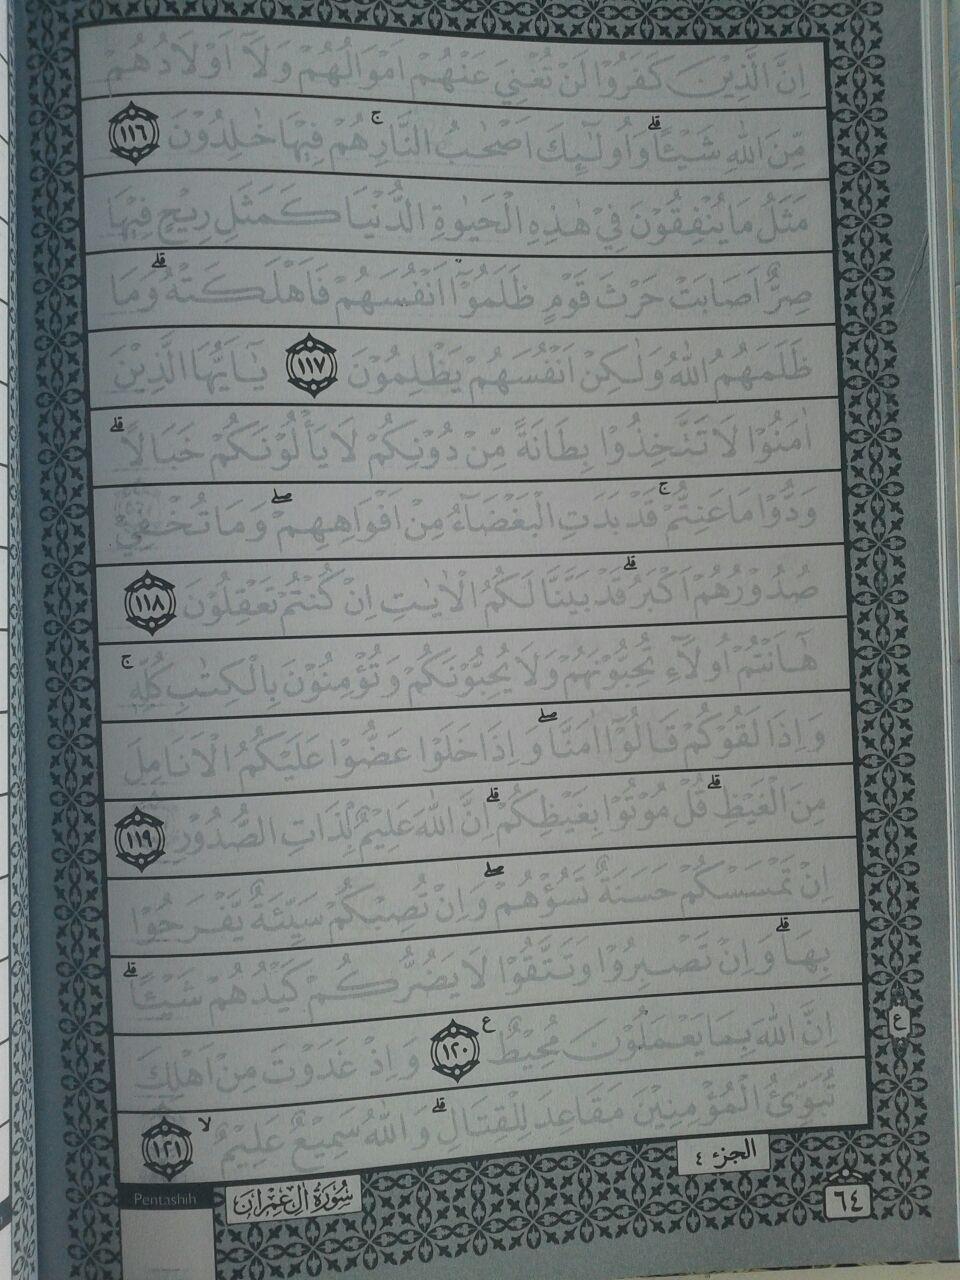 اِنَّ الَّذِيْنَ كَفَرُوْا لَنْ تُغْنِيَ عَنْهُمْ اَمْوَالُهُمْ وَلَآ اَوْلَادُهُمْ
مِّنَ اللّٰهِ شَيْـًٔاۗ وَاُولٰۤىِٕكَ اَصْحٰبُ النَّارِۚ هُمْ فِيْهَا خٰلِدُوْنَ ١١٦
مَثَلُ مَا يُنْفِقُوْنَ فِيْ هٰذِهِ الْحَيٰوةِ الدُّنْيَا كَمَثَلِ رِيْحٍ فِيْهَا
صِرٌّ اَصَابَتْ حَرْثَ قَوْمٍ ظَلَمُوْٓا اَنْفُسَهُمْ فَاَهْلَكَتْهُ ۗ وَمَا
ظَلَمَهُمُ اللّٰهُ وَلٰكِنْ اَنْفُسَهُمْ يَظْلِمُوْنَ ١١٧ يٰٓاَيُّهَا الَّذِيْنَ
اٰمَنُوْا لَا تَتَّخِذُوْا بِطَانَةً مِّنْ دُوْنِكُمْ لَا يَأْلُوْنَكُمْ خَبَالًاۗ
وَدُّوْا مَا عَنِتُّمْۚ قَدْ بَدَتِ الْبَغْضَاۤءُ مِنْ اَفْوَاهِهِمْۖ وَمَا تُخْفِيْ
صُدُوْرُهُمْ اَكْبَرُ ۗ قَدْ بَيَّنَّا لَكُمُ الْاٰيٰتِ اِنْ كُنْتُمْ تَعْقِلُوْنَ ١١٨
هٰٓاَنْتُمْ اُولَاۤءِ تُحِبُّوْنَهُمْ وَلَا يُحِبُّوْنَكُمْ وَتُؤْمِنُوْنَ بِالْكِتٰبِ كُلِّهٖۚ
وَاِذَا لَقُوْكُمْ قَالُوْٓا اٰمَنَّاۖ وَاِذَا خَلَوْا عَضُّوْا عَلَيْكُمُ الْاَنَامِلَ
مِنَ الْغَيْظِۗ قُلْ مُوْتُوْا بِغَيْظِكُمْۗ اِنَّ اللّٰهَ عَلِيْمٌ ۢبِذَاتِ الصُّدُوْرِ ١١٩
اِنْ تَمْسَسْكُمْ حَسَنَةٌ تَسُؤْهُمْۖ وَاِنْ تُصِبْكُمْ سَيِّئَةٌ يَّفْرَحُوْا
بِهَاۗ وَاِنْ تَصْبِرُوْا وَتَتَّقُوْا لَا يَضُرُّكُمْ كَيْدُهُمْ شَيْـًٔاۗ
اِنَّ اللّٰهَ بِمَا يَعْمَلُوْنَ مُحِيْطٌ ع ١٢٠ وَاِذْ غَدَوْتَ مِنْ اَهْلِكَ
تُبَوِّئُ الْمُؤْمِنِيْنَ مَقَاعِدَ لِلْقِتَالِۗ وَاللّٰهُ سَمِيْعٌ عَلِيْمٌۙ ١٢١
ع
الجزء ٤
٦٤
سُوْرَةُ اٰلِ عِمْرَان
Pentashih